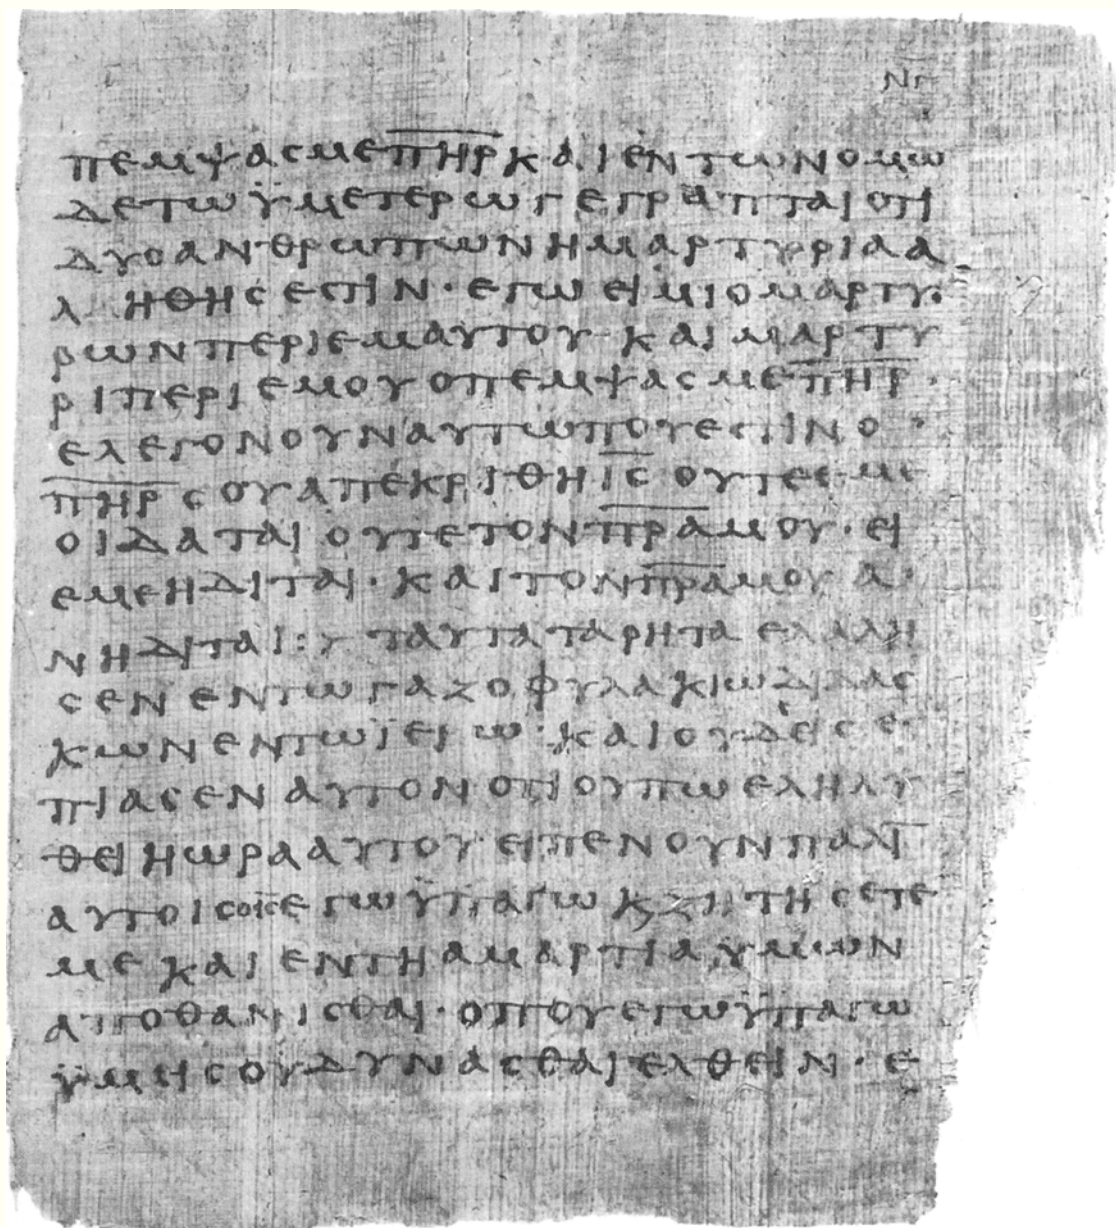 ΝΓ
ΠΕΜΨΑCΜΕΠΗΡΚΑΙΕΝΤΩΝΟΜΩ
ΔΕΤΩΫΜΕΤΕΡΩΓΕΓΡΑΠΤΑΙΟΤΙ
ΔΥΟΑΝΘΡΩΠΩΝΗΜΑΡΤΥΡΙΑΑ
ΛΗΘΗCΕCΤΙΝ·ΕΓΩΕΙΜΙΟΜΑΡΤΥ
ΡΩΝΠΕΡΙΕΜΑΥΤΟΥ·ΚΑΙΜΑΡΤΥ
ΡΙΠΕΡΙΕΜΟΥΟΠΕΜΨΑCΜΕΠΗΡ·
ΕΛΕΓΟΝΟΥΝΑΥΤΩΠΟΥΕCΤΙΝΟ
ΠΗΡCΟΥΑΠΕΚΡΙΘΗΙCΟΥΤΕΕΜΕ
ΟΙΔΑΤΑΙΟΥΤΕΤΟΝΠΡΑΜΟΥ·ΕΙ
ΕΜΕΗΔΙΤΑΙ·ΚΑΙΤΟΝΠΡΑΜΟΥΑ
ΝΗΔΙΤΑΙ:ΤΑΥΤΑΤΑΡΗΤΑΕΛΑΛΗ
CΕΝΕΝΤΩΓΑΖΟΦΥΛΑΚΙΩΔΙΔΑC
ΚΩΝΕΝΤΩΪΕΡΩ·ΚΑΙΟΥΔΕΙCΕ
ΠΙΑCΕΝΑΥΤΟΝΟΤΙΟΥΠΩΕΛΗΛΥ
ΘΕΙΗΩΡΑΑΥΤΟΥ·ΕΙΠΕΝΟΥΝΠΑΛΙ
ΑΥΤΟΙCΟΙCΕΓΩΫΠΑΓΩΚΖΗΤΗCΕΤΕ
ΜΕΚΑΙΕΝΤΗΑΜΑΡΤΙΑΫΜΩΝ
ΑΠΟΘΑΝΙCΘΑΙ·ΟΠΟΥΕΓΩΫΠΑΓΩ
ΫΜΕΙCΟΥΔΥΝΑCΘΑΙΕΛΘΕΙΝ·Ε